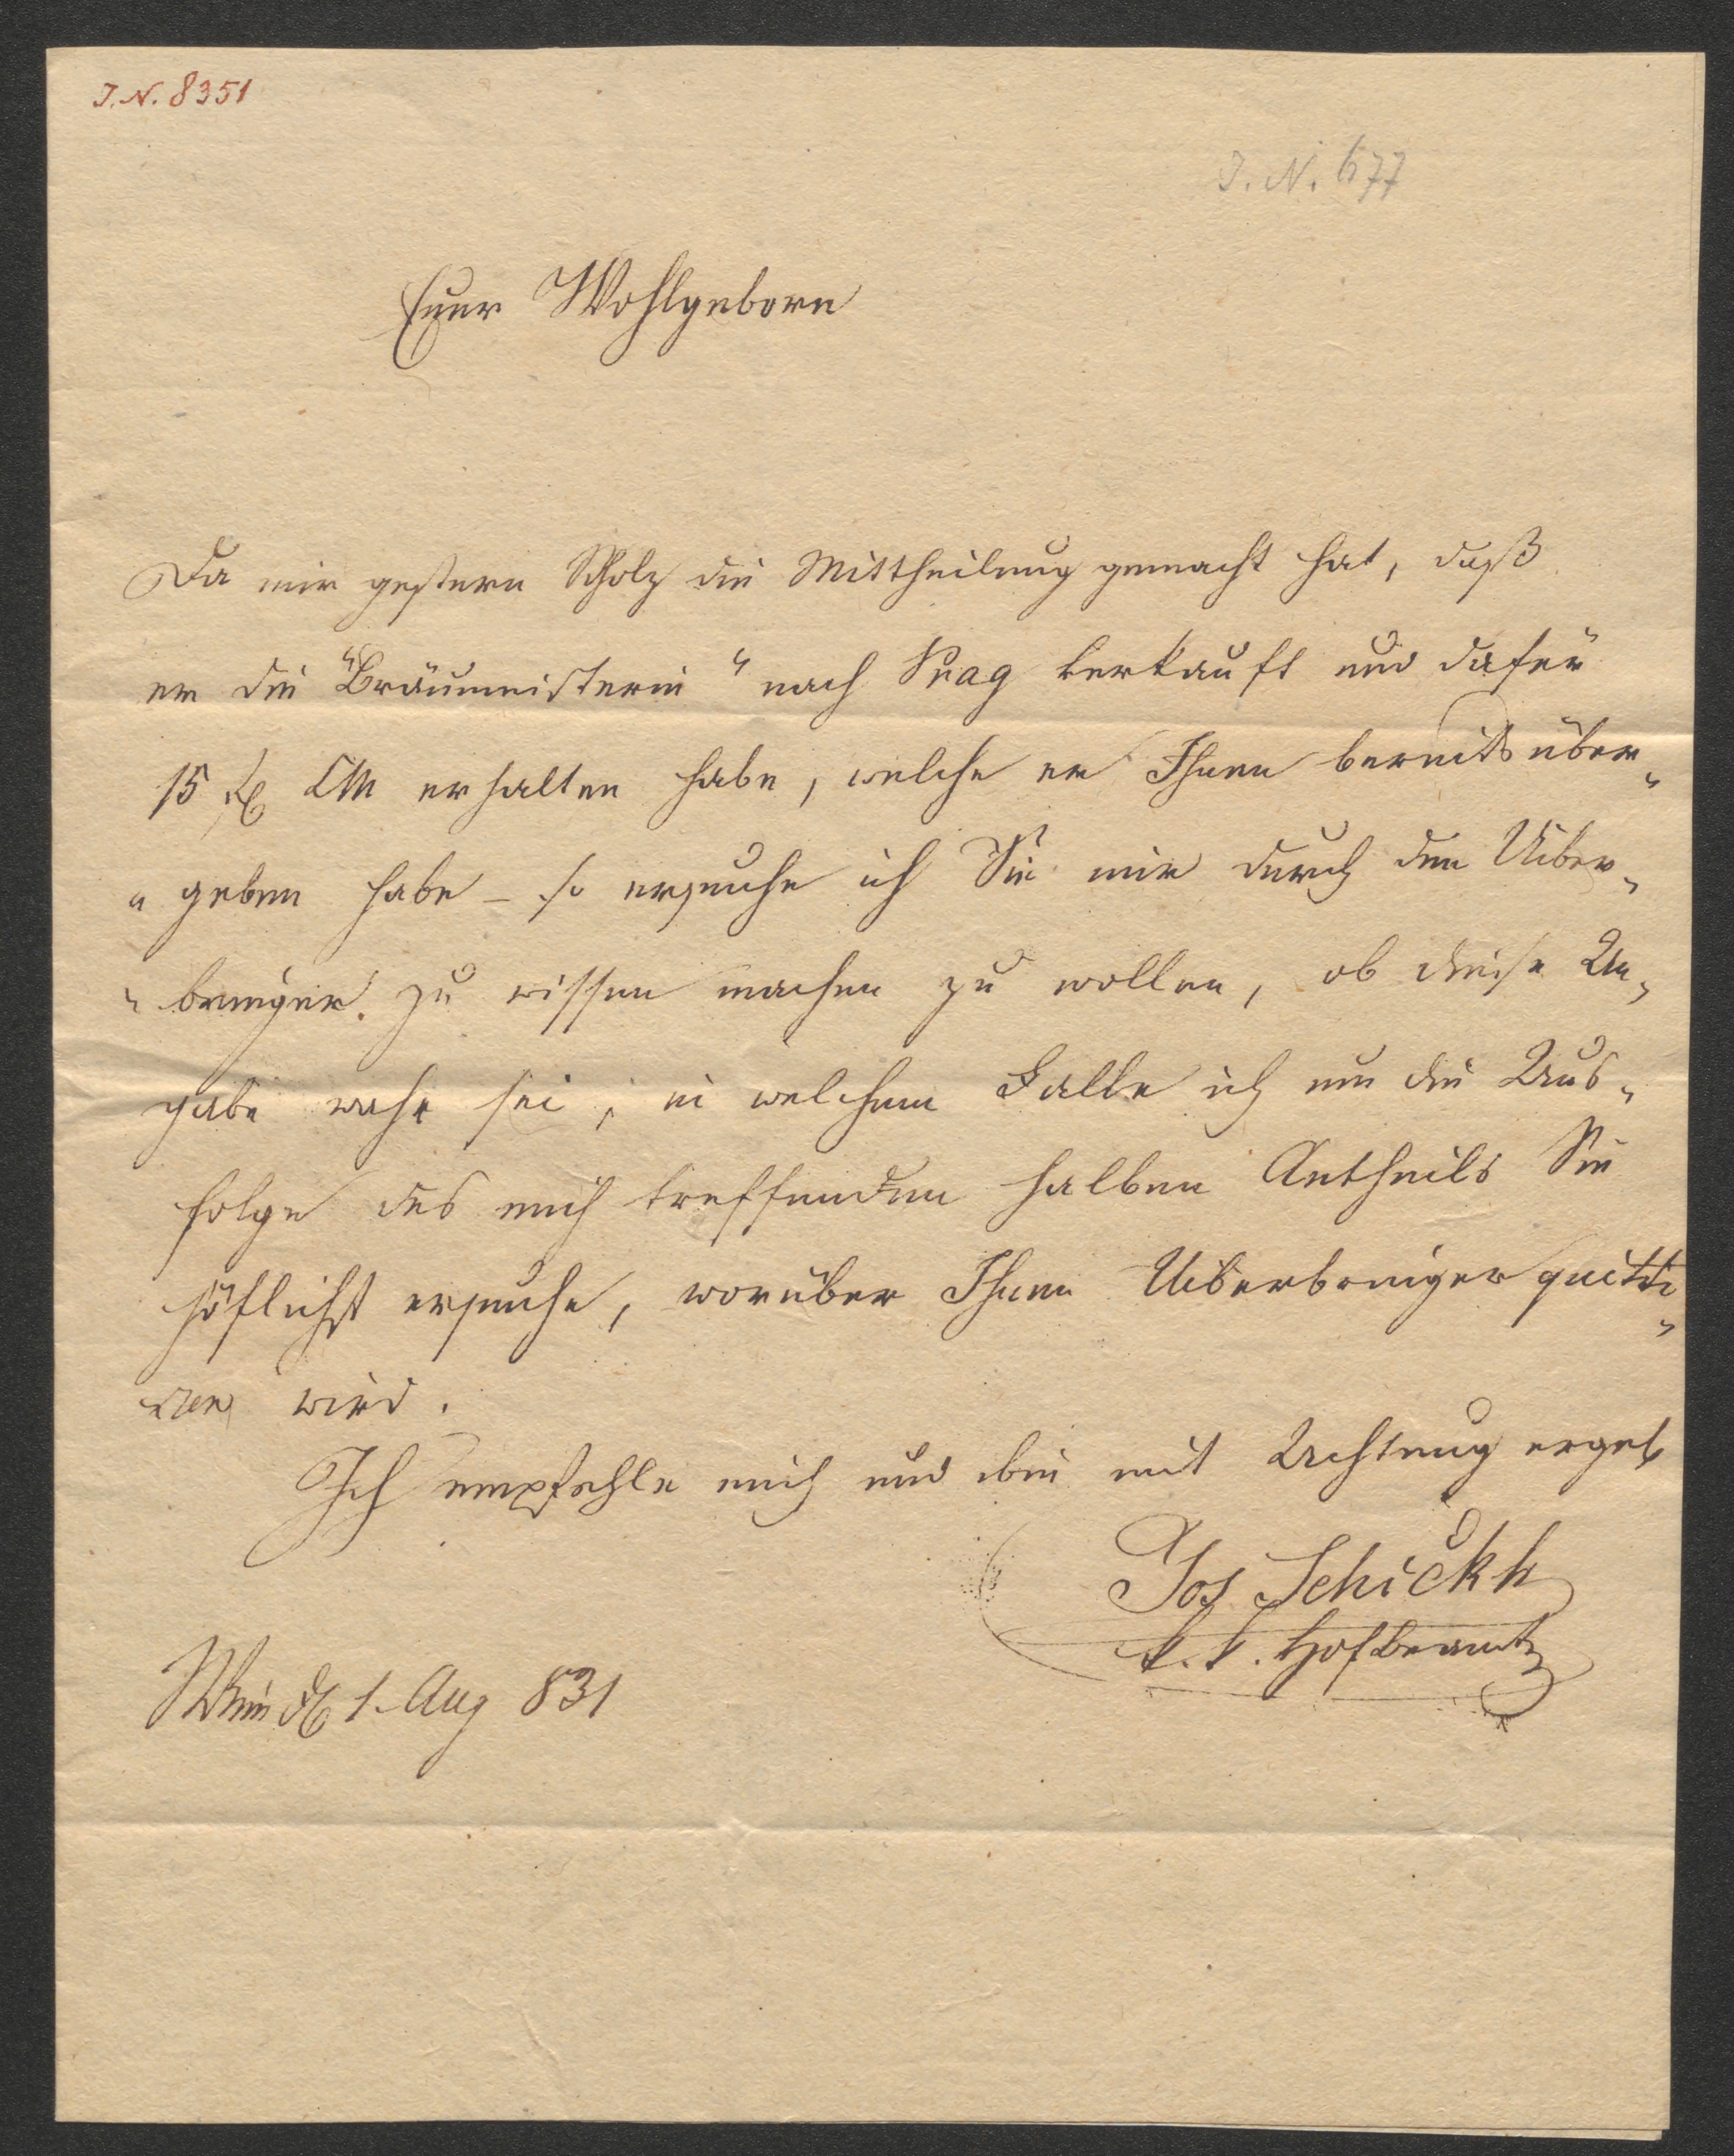 I. N. 8351
I. N. 677
Euer Wohlgeborn
Da mir gestern Scholz die Mittheilung gemacht hat, daß
er die "Bräumeisterin" nach Prag verkauft und dafür
15 f CM erhalten habe, welche er Ihnen bereits über-
-geben habe – so ersuche ich Sie mir durch den Uiber-
-bringer zu wissen machen zu wollen, ob diese An-
gabe wahr sei, in welchem Falle ich um die Aus-
folge des mich treffenden halben Antheils Sie
höflichst ersuche, worüber Ihnen Uiberbringer quitti-
ren wird.
Ich empfehle mich und bin mit Achtung ergeb
Jos Schickh
k. k. Hofbeamte
Wien d 1. Aug 831